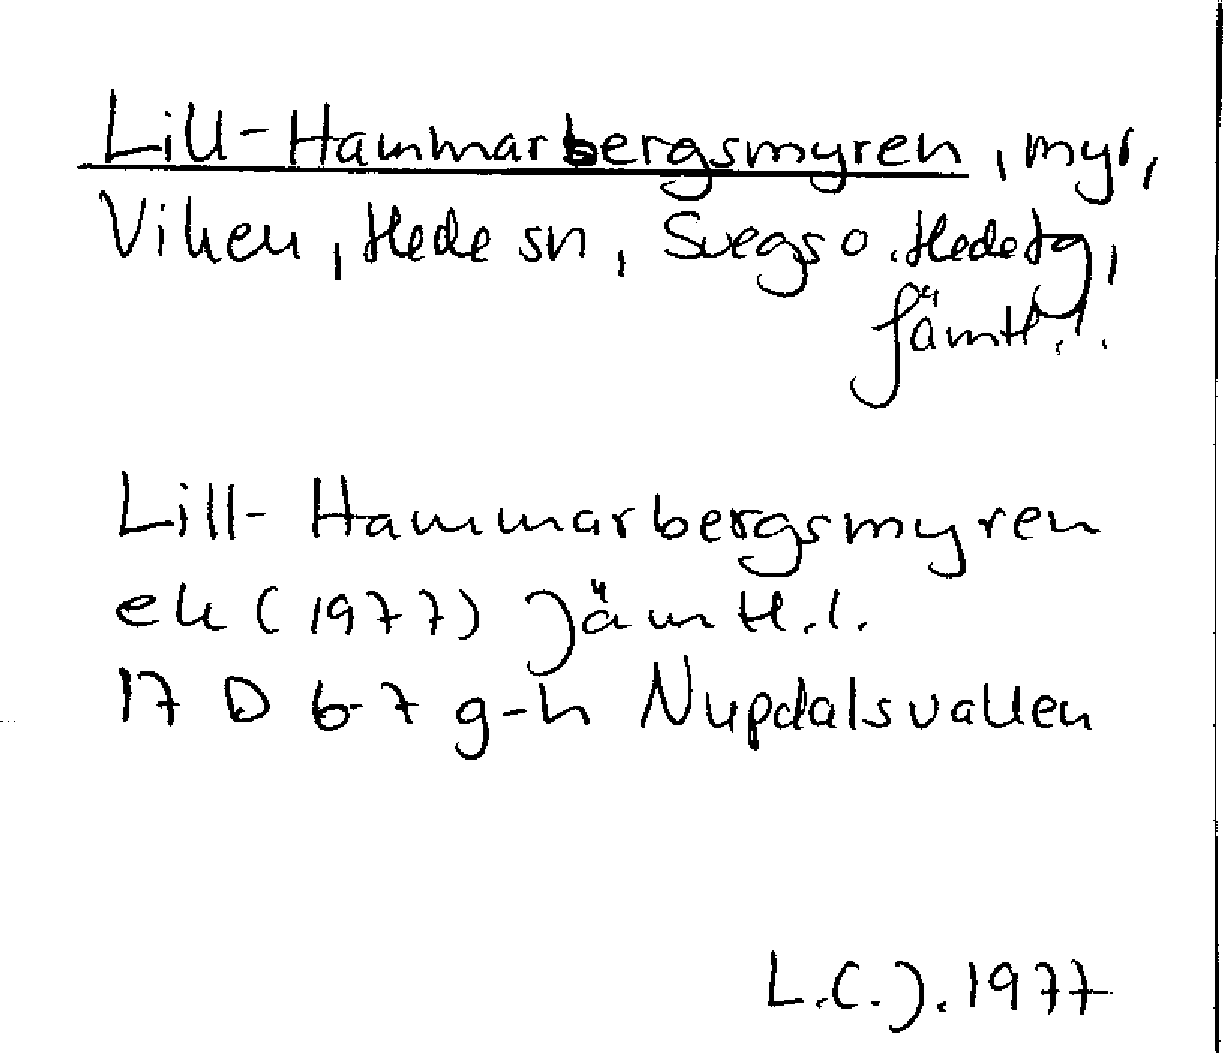 Lill-Hammarbergsmyren, myr,
Viken, Hede sn, Svegs o. Hede tg,
Jämtl. l.
Lill-Hammarbergsmyren
ek (1977) Jämtl. l.
17 D 6-7 g-h Nupdalsvallen
L.C.J. 1977